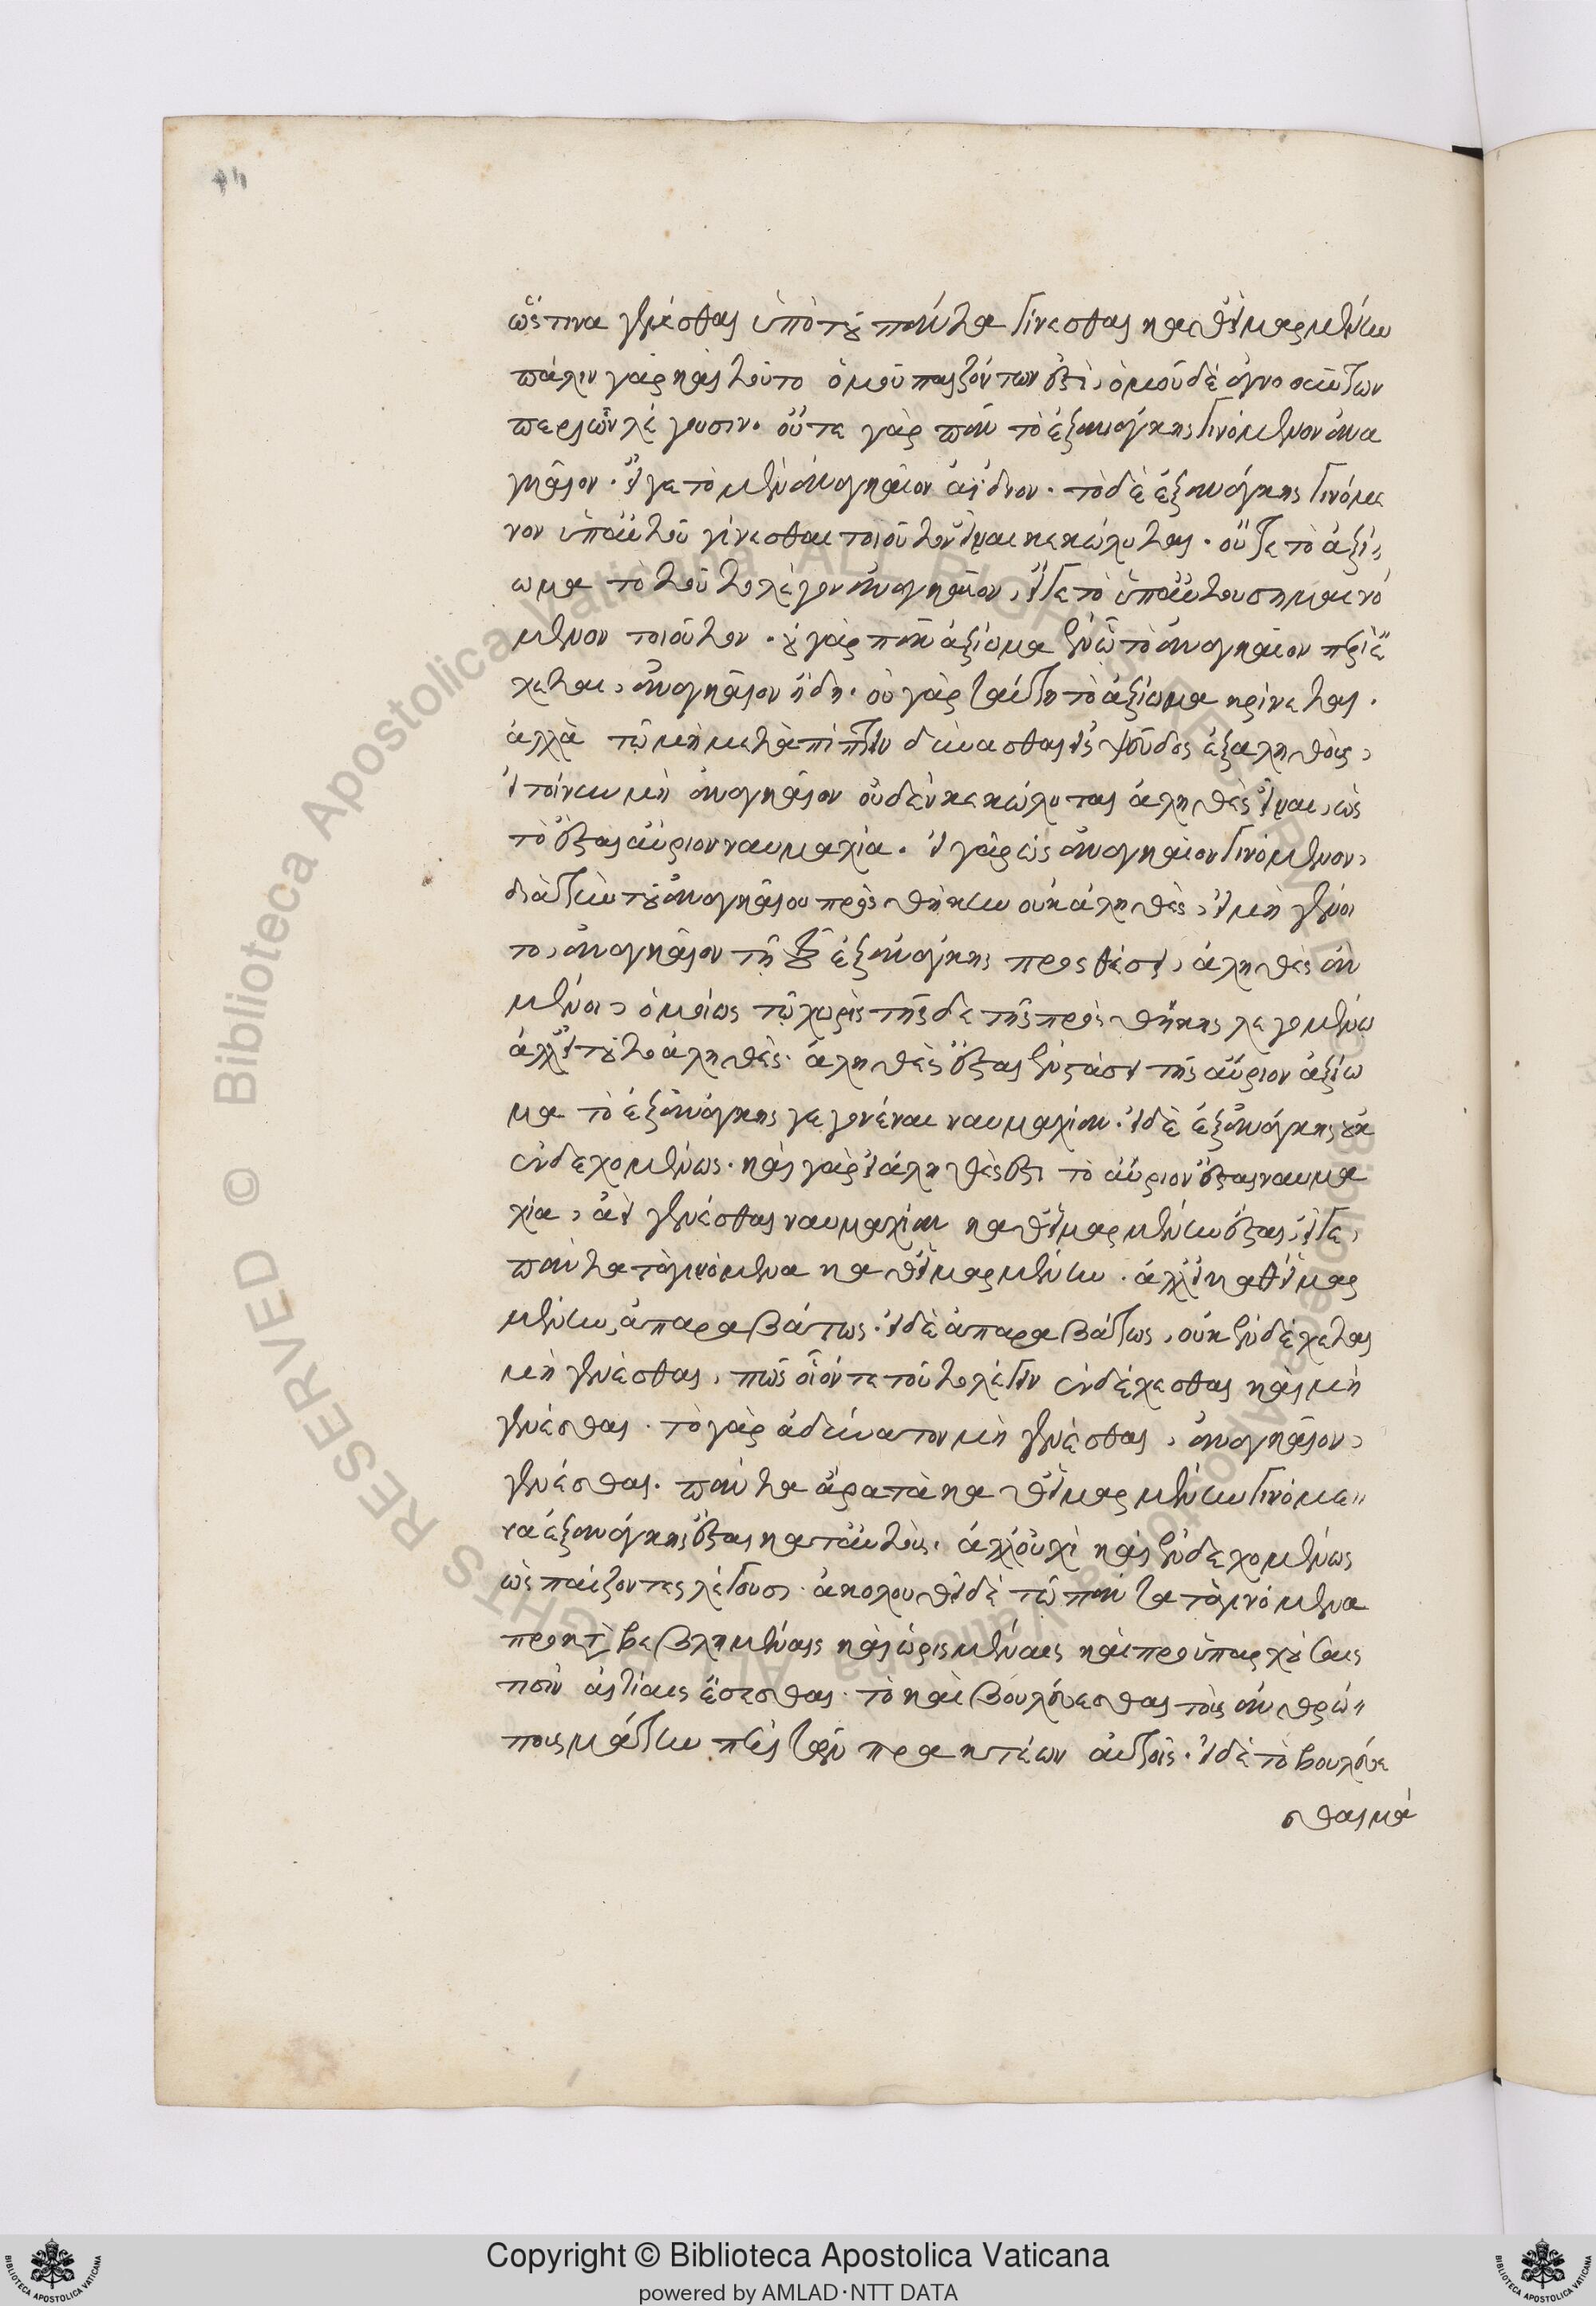 ὥς τινα γενέσθαι ὑπὸ τοῦ πάντα γίνεσθαι καθ' εἱμαρμένην
πάλιν γὰρ καὶ τοῦτο ὁμοῦ παιζόντων ἐστὶ, ὁμοῦ δὲ ἀγνοούντων
περὶ ὧν λέγουσιν. οὔτε γὰρ πᾶν τὸ ἐξ ἀνάγκης γινόμενον ἀνα
γκαῖον. εἴ γε τὸ μὲν ἀναγκαῖον ἀΐδιον. τὸ δὲ ἐξ ἀνάγκης γινόμε
νον ὑπ' αὐτοῦ γίνεσθαι τοιοῦτον εἶναι κεκώλυται. οὔτε τὸ ἀξί
ωμα τὸ τοῦτο λέγον ἀναγκαῖον, εἴ γε τὸ ὑπ' αὐτοῦ σημαινό
μενον τοιοῦτον. οὐ γὰρ πᾶν ἀξίωμα ἐν ᾧ τὸ ἀναγκαῖον περιέ
χεται, ἀναγκαῖον ἤδη. οὐ γὰρ ταύτῃ τὸ ἀξίωμα κρίνεται.
ἀλλὰ τῷ μὴ μεταπίπτειν δύνασθαι εἰς ψεῦδος ἐξ ἀληθοῦς,
εἰ τοίνυν μὴ ἀναγκαῖον οὐδὲν κεκώλυται ἀληθὲς εἶναι, ὡς
τὸ ἔσται αὔριον ναυμαχία. εἰ γὰρ ὡς ἀναγκαῖον γινόμενον,
διὰ τὴν τοῦ ἀναγκαίου προσθήκην οὐκ ἀληθὲς, εἰ μὴ γένοι
το, ἀναγκαῖον τῇ τοῦ ἐξ ἀνάγκης προσθέσει, ἀληθὲς ἂν
μένοι, ὁμοίως τῷ χωρὶς τῆσδε τῆς προσθήκης λεγομένῳ
ἀλλ' εἰ τοῦτο ἀληθὲς. ἀληθὲς ἔσται ἐνστάσει τῆς αὔριον ἀξίω
μα τὸ ἐξ ἀνάγκης γεγονέναι ναυμαχίαν. εἰ δὲ ἐξ ἀνάγκης οὐκ
ἐνδεχομένως. καὶ γὰρ εἰ ἀληθές ἐστι τὸ αὔριον ἔσται ναυμα
χία, ἀεὶ γενέσθαι ναυμαχίαν καθ' εἱμαρμένην ἔσται, εἴ γε,
πάντα τὰ γινόμενα καθ' εἱμαρμένην. ἀλλ' εἰ καθ' εἱμαρ
μένην, ἀπαραβάτως. εἰ δὲ ἀπαραβάτως, οὐκ ἐνδέχεται
μὴ γενέσθαι, πῶς οἷόν τε τοῦτο λέγειν ἐνδέχεσθαι καὶ μὴ
γενέσθαι. τὸ γὰρ ἀδύνατον μὴ γενέσθαι, ἀναγκαῖον,
γενέσθαι. πάντα ἄρα τὰ καθ' εἱμαρμένην γινόμε
να ἐξ ἀνάγκης ἔσται κατ' αὐτούς. ἀλλ' οὐχὶ καὶ ἐνδεχομένως
ὡς παίζοντες λέγουσι. ἀκολουθεῖ δὲ τῷ πάντα τὰ γινόμενα
προκαταβεβλημέναις καὶ ὡρισμέναις καὶ προϋπαρχούσαις
τισὶν αἰτίαις ἕπεσθαι. τὸ καὶ βουλεύεσθαι τοὺς ἀνθρώ
πους μάτην περὶ τῶν πρακτέων αὐτοῖς. εἰ δὲ τὸ βουλεύε
σθαι μά